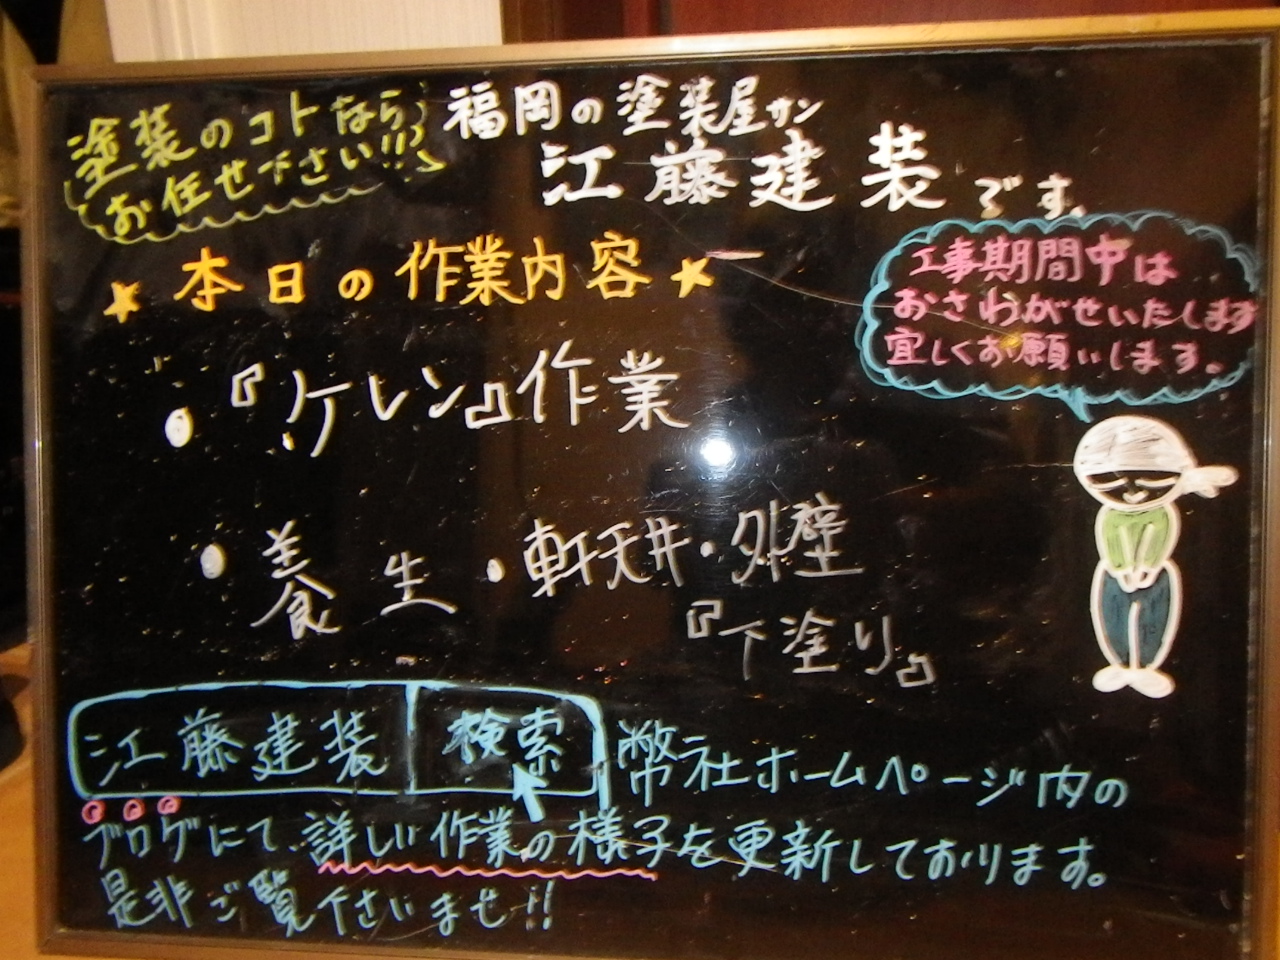 塗装のコトなら
お任せ下さい!!!
福岡の塗装屋サン
江藤建装です。
★本日の作業内容★
工事期間中は
おさわがせいたします
宜しくお願いします。
・『ケレン』作業
・養生・軒天井・外壁
『下塗り』
江藤建装 検索
弊社ホームページ内の
ブログにて、詳しい作業の様子を更新しております。
是非ご覧下さいませ!!